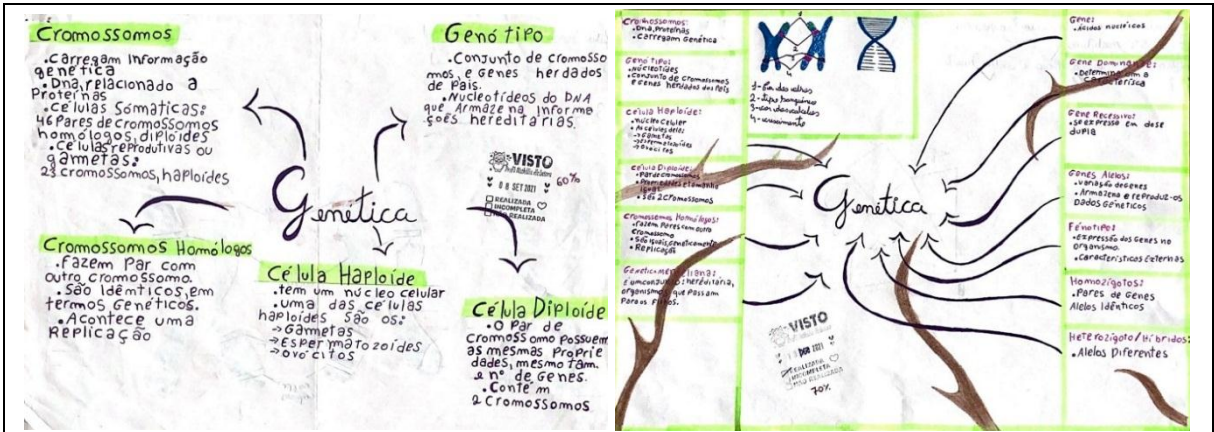 Cromossomos
.Carregam Informação
genética
.Dna, relacionado a
Proteínas
.Células Somáticas:
46 Pares de cromossomos
homólogos, diploides
.Células reprodutivas ou
gametas:
23 cromossomos, haploídes
Genótipo
.Conjunto de cromosso
mos, e Genes herdados
de Pais.
.Nucleotídeos do DNA
que Armazena Informa
ções hereditárias
VISTO
08 SET 2021
60%
REALIZADA
INCOMPLETA
NÃO REALIZADA
Genética
Cromossomos Homólogos
.Fazem Par com
outro cromossomo.
.São Idênticos, em
termos Genéticos.
.Acontece uma
Replicação
Célula Haploíde
.tem um núcleo celular
.uma das células
haploídes são os:
→Gametas
→Espermatozoídes
→ovócitos
Célula Diploíde
.O Par de
cromossomo Possuem
as mesmas Proprie
dades, mesmo tam.
e nº de Genes.
.Contém
2 Cromossomos
Cromossomos:
.Dna, Proteínas
.Carregam Genética
Genótipo:
.Nucleotídes
.Conjunto de cromossomos
e Genes herdados dos Pais
célula Haploíde:
.Núcleo Celular
.As células deles:
→Gametas
→Espermatozoides
→Ovócitos
célula Diploíde:
.Par de cromossomos
.Propriedades e tamanho
igual
.Seis 2 Cromossomos
Cromossomos Homólogos:
.Fazem Pares com outro
Cromossomo
.São iguais, Geneticamente
.Replicação
Genética
É um conjunto: hereditária,
organismos que Passam
Para os Filhos.
1-cor dos olhos
2-tipo sanguíneo
3-cor dos cabelos
4-crescimento
Genética
VISTO
2021
REALIZADA
INCOMPLETA
NÃO REALIZADA
70%
Genes
.Ácidos nucleicos
Gene Dominante:
.Determinam a
Característica
Gene Recessivo:
.SP expresso em dose
dupla
Genes Alelos:
.Variação de genes
.Armazena e reproduz os
Dados Genéticos
Fenótipo:
.Expressão dos Genes no
organismo.
.Características Externas
Homozigotos:
.Pares de Genes
Alelos Idênticos
Heterozigoto/Híbridos:
.Alelos Diferentes